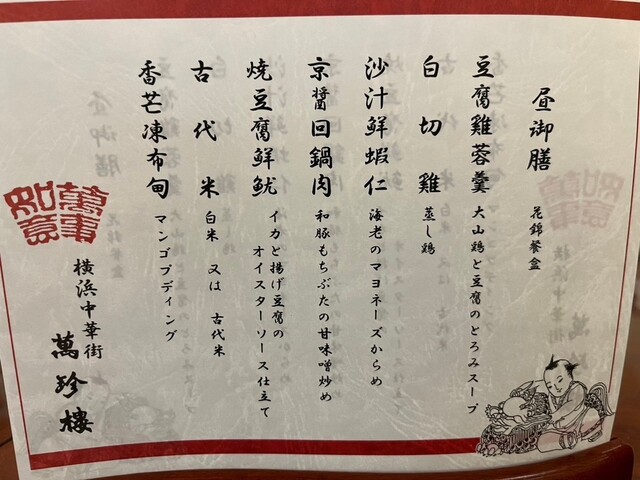 昼御膳
花錦餐盒
豆腐雞蓉羹
大山鶏と豆腐のとろみスープ
白切雞
蒸し鶏
沙汁鮮蝦仁
海老のマヨネーズからめ
京醬回鍋肉
和豚もちぶたの甘味噌炒め
焼豆腐鮮魷
イカと揚げ豆腐の
オイスターソース仕立て
古代米
白米 又は 古代米
香芒凍布甸
マンゴプディング
萬事如意
横浜中華街
萬珍樓